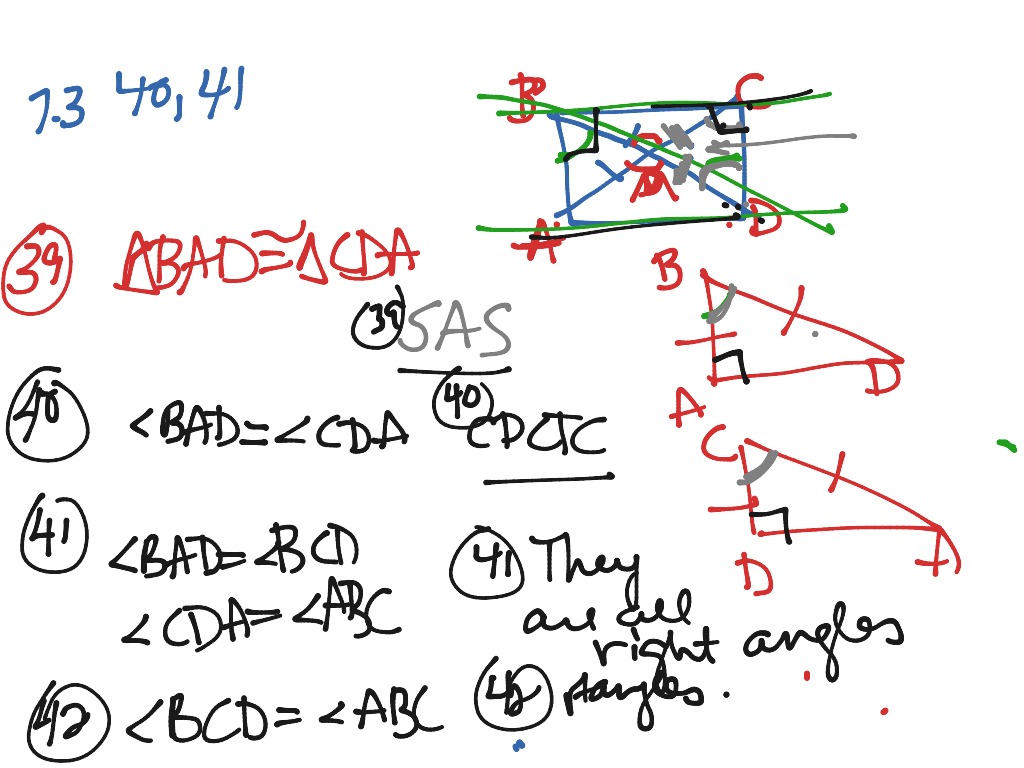 7.3 40, 41
B C
A D
39 △BAD ≅ △CDA
39 SAS
B
A D
40 <BAD = <CDA
40 CPCTC
C
D A
41 <BAD = <BCD
<CDA = <ABC
41 They
are all
right angles
42 <BCD = <ABC
42 angles.